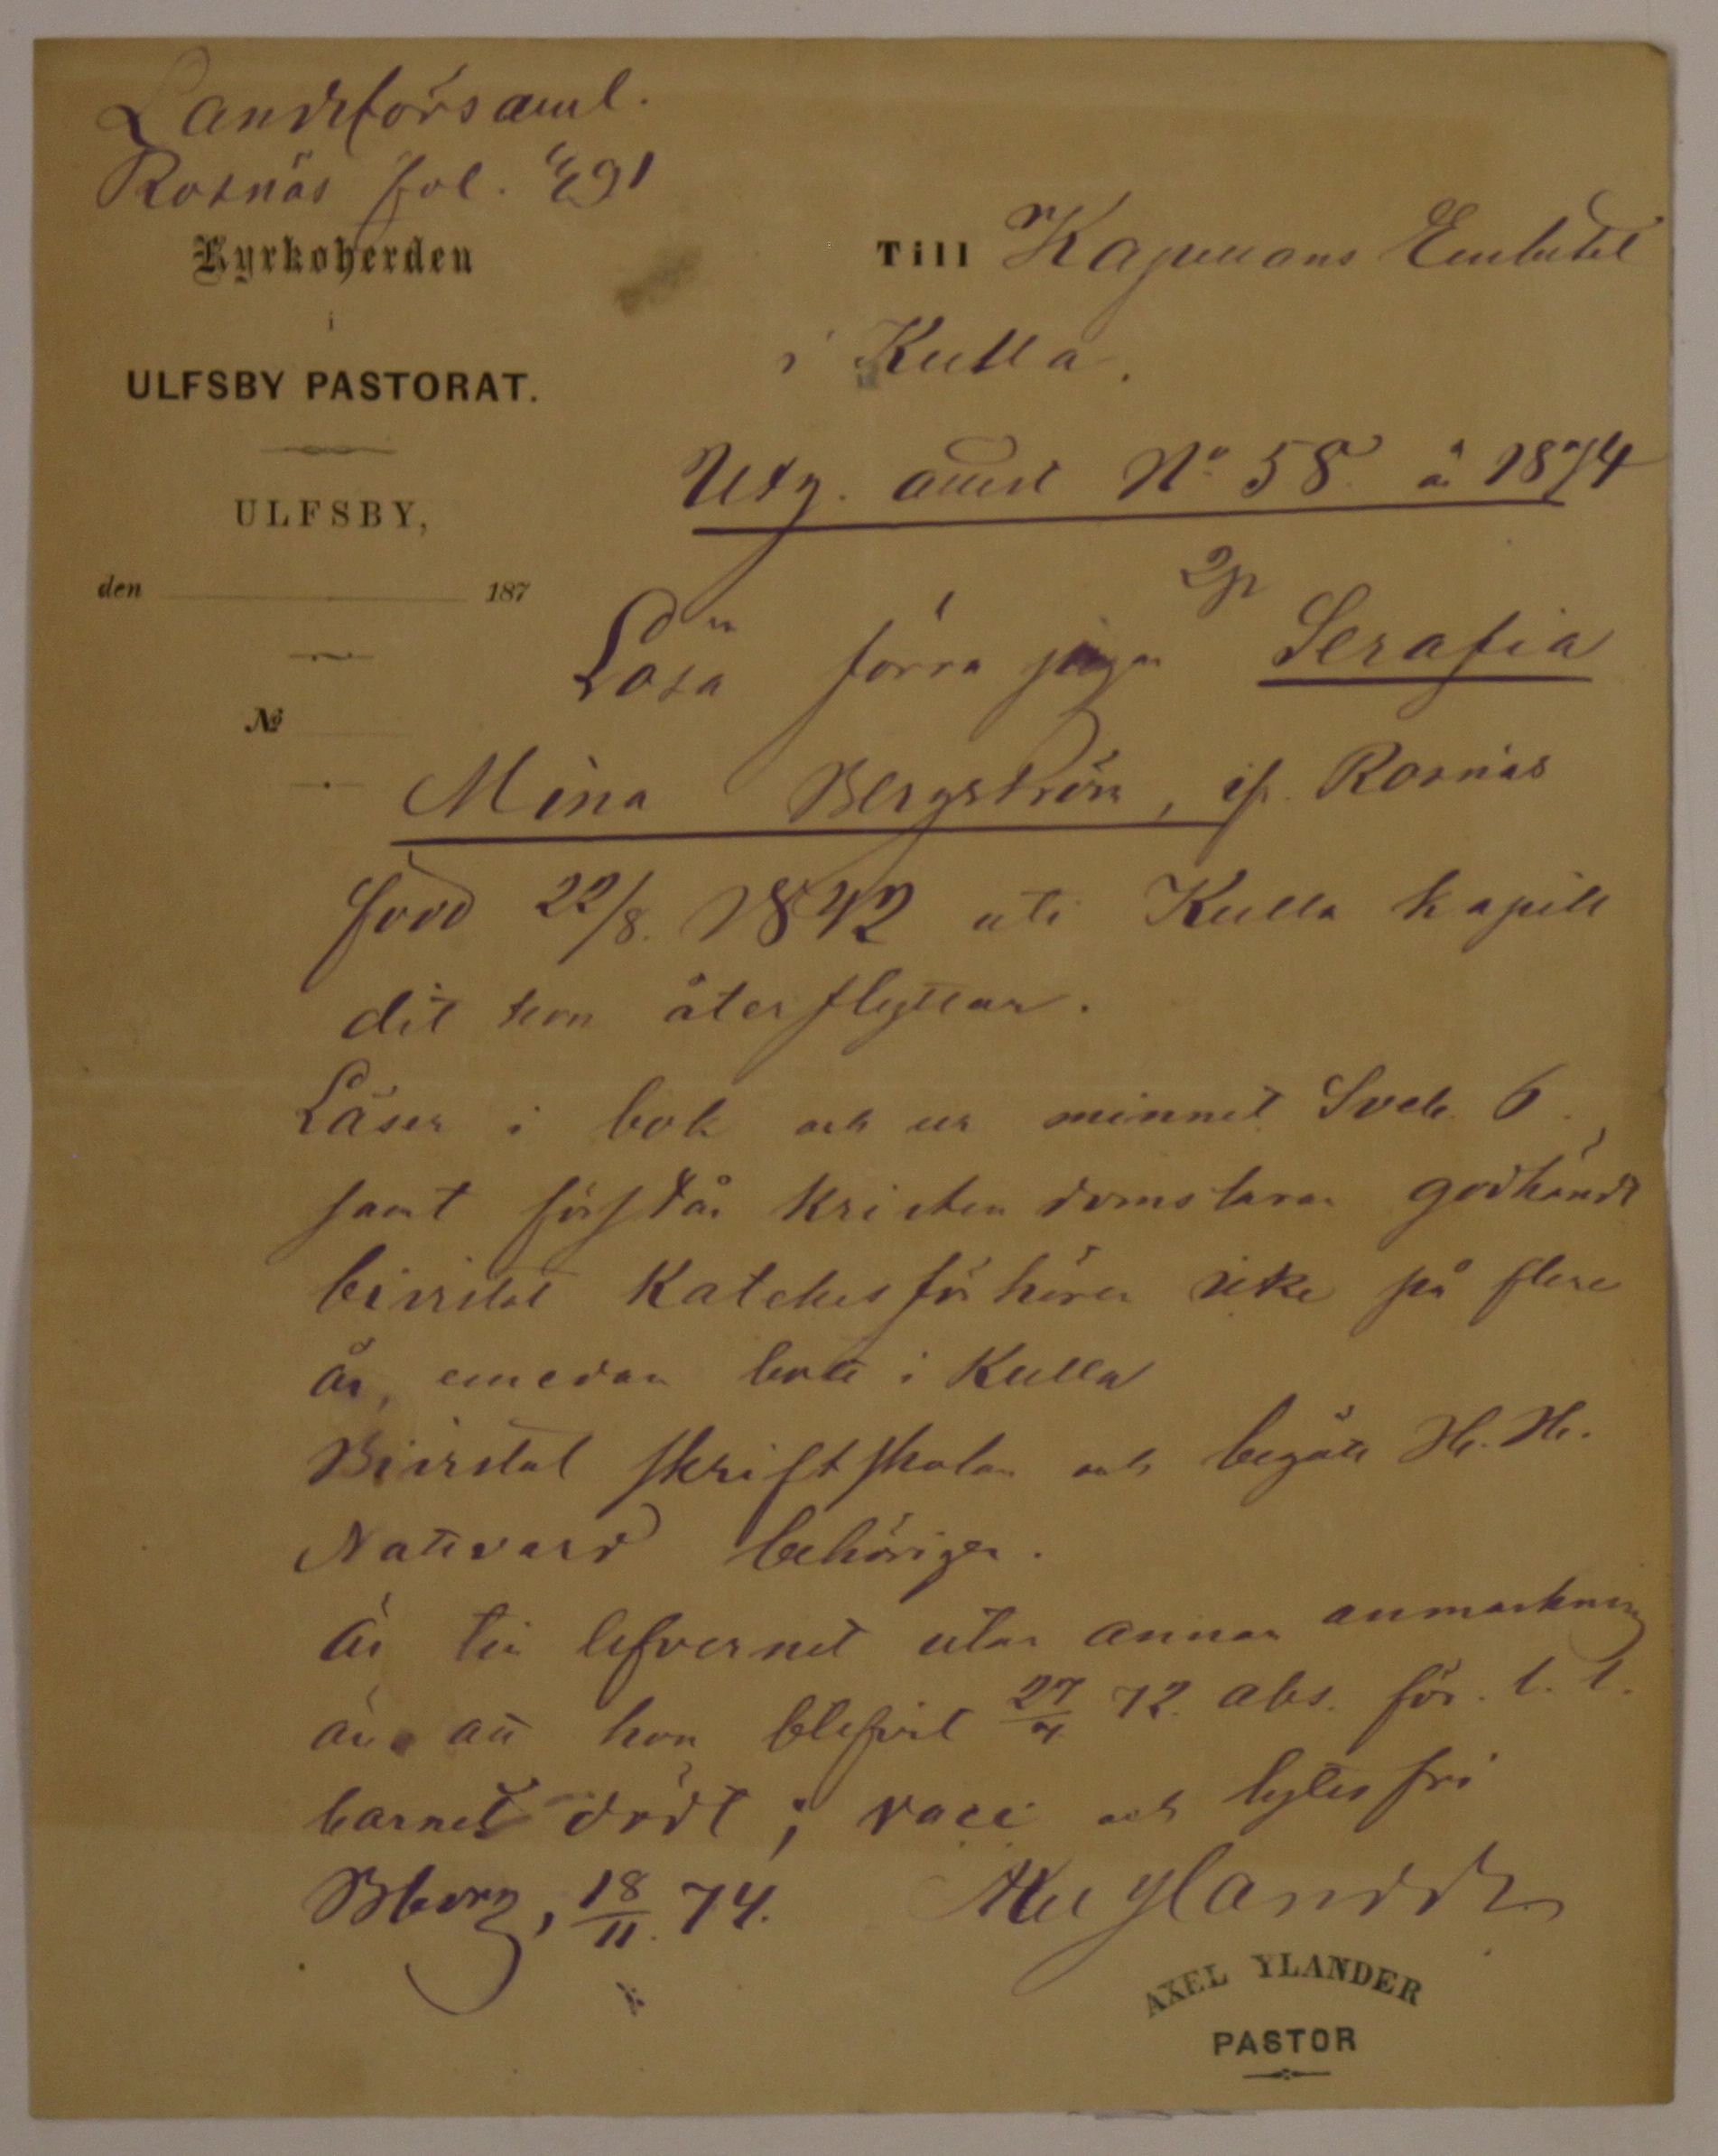 Landsförsaml.
Rosnäs fol. 691
Kyrkoherden
i
ULFSBY PASTORAT.
ULFSBY,
den 187
№
Till Kapellans Embetet
i Kulla.
Utg. attest No 58. år 1874
Lösa förra pigan Serafia
Mina Bergström, ifr. Rosnäs
född 22/8. 1842 uti Kulla kapell
dit hon återflyttar.
Läser i bok och ur minnet Sveb. 6.
samt förstår kristendomsläran godkändt
bivistat Katechesförhören icke på flere
år, emedan bott i Kulla
Bivistat skriftskolan och begått H. H.
Nattvard behörigen.
Är till lefvernet utan annan anmärkning
än att hon blefvit 27/4 72. abs. för l. l.
barnet dödt; vacc och lytesfri
Bborg, 18/11. 74. Ax Ylander
AXEL YLANDER
PASTOR